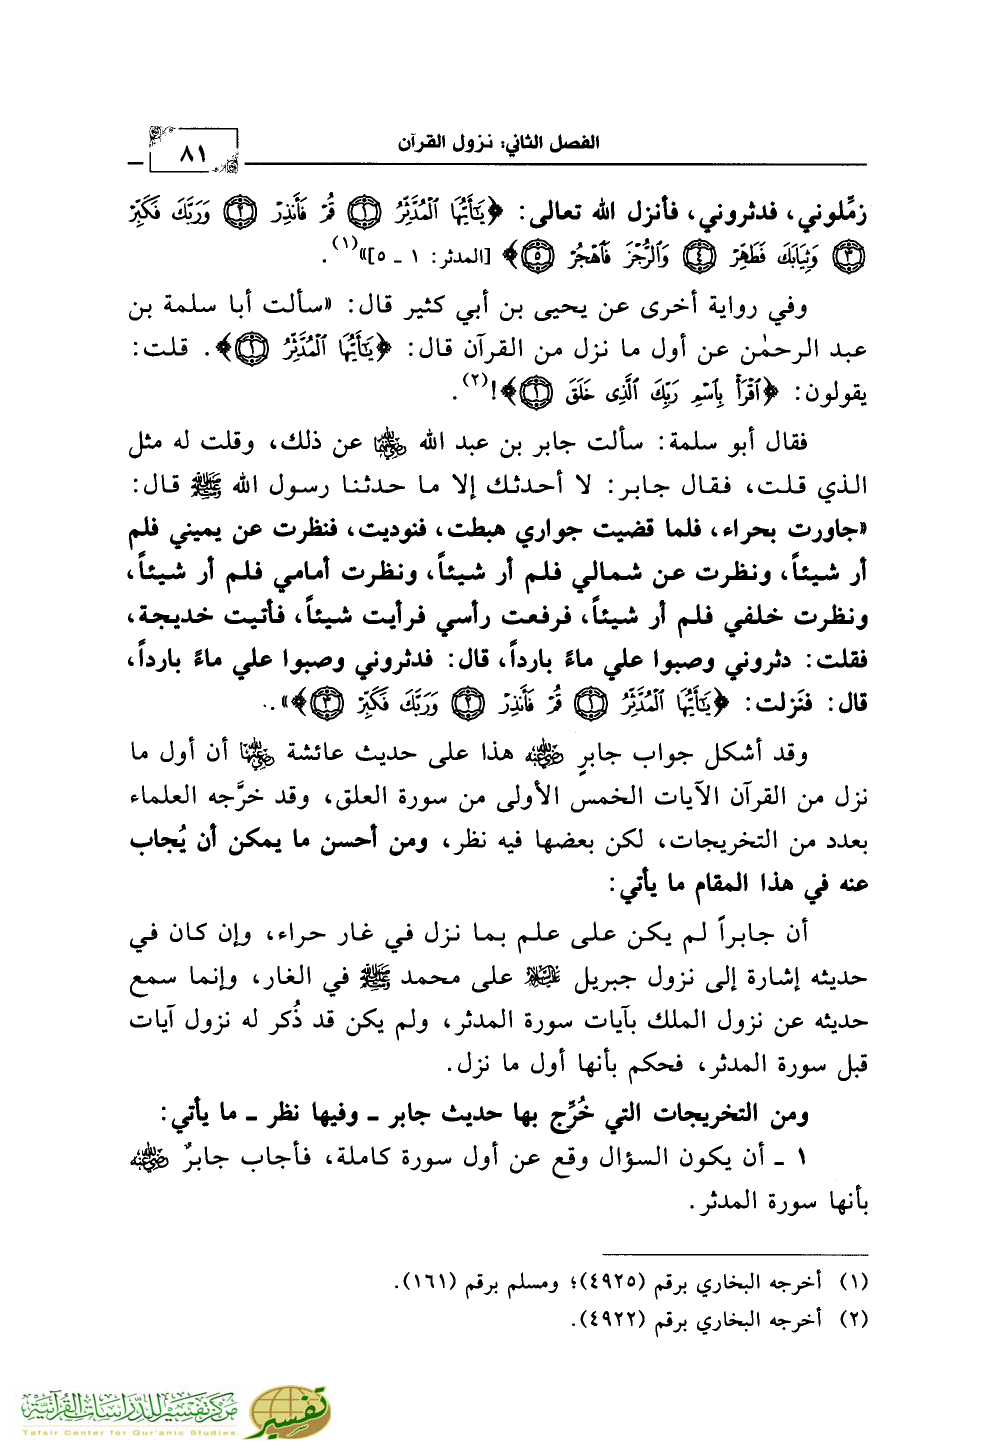 الفصل الثاني: نزول القرآن
٨١
زمِّلوني، فدثروني، فأنزل الله تعالى: ﴿يَٰٓأَيُّهَا ٱلْمُدَّثِّرُ ۝١ قُمْ فَأَنذِرْ ۝٢ وَرَبَّكَ فَكَبِّرْ
۝٣ وَثِيَابَكَ فَطَهِّرْ ۝٤ وَٱلرُّجْزَ فَٱهْجُرْ ۝٥﴾ [المدثر: ١ ـ ٥]»(١).
وفي رواية أخرى عن يحيى بن أبي كثير قال: «سألت أبا سلمة بن
عبد الرحمٰن عن أول ما نزل من القرآن قال: ﴿يَٰٓأَيُّهَا ٱلْمُدَّثِّرُ ۝١﴾. قلت:
يقولون: ﴿ٱقْرَأْ بِٱسْمِ رَبِّكَ ٱلَّذِى خَلَقَ ۝١﴾!(٢).
فقال أبو سلمة: سألت جابر بن عبد الله رضي الله عنهما عن ذلك، وقلت له مثل
الذي قلت، فقال جابر: لا أحدثك إلا ما حدثنا رسول الله ﷺ قال:
«جاورت بحراء، فلما قضيت جواري هبطت، فنوديت، فنظرت عن يميني فلم
أر شيئاً، ونظرت عن شمالي فلم أر شيئاً، ونظرت أمامي فلم أر شيئاً،
ونظرت خلفي فلم أر شيئاً، فرفعت رأسي فرأيت شيئاً، فأتيت خديجة،
فقلت: دثروني وصبوا علي ماءً بارداً، قال: فدثروني وصبوا علي ماءً بارداً،
قال: فنَزلت: ﴿يَٰٓأَيُّهَا ٱلْمُدَّثِّرُ ۝١ قُمْ فَأَنذِرْ ۝٢ وَرَبَّكَ فَكَبِّرْ ۝٣﴾»..
وقد أشكل جواب جابرٍ رضي الله عنه هذا على حديث عائشة رضي الله عنها أن أول ما
نزل من القرآن الآيات الخمس الأولى من سورة العلق، وقد خرَّجه العلماء
بعدد من التخريجات، لكن بعضها فيه نظر، ومن أحسن ما يمكن أن يُجاب
عنه في هذا المقام ما يأتي:
أن جابراً لم يكن على علم بما نزل في غار حراء، وإن كان في
حديثه إشارة إلى نزول جبريل عليه السلام على محمد ﷺ في الغار، وإنما سمع
حديثه عن نزول الملك بآيات سورة المدثر، ولم يكن قد ذُكر له نزول آيات
قبل سورة المدثر، فحكم بأنها أول ما نزل.
ومن التخريجات التي خُرِّج بها حديث جابر ـ وفيها نظر ـ ما يأتي:
١ ـ أن يكون السؤال وقع عن أول سورة كاملة، فأجاب جابرٌ رضي الله عنه
بأنها سورة المدثر.
(١) أخرجه البخاري برقم (٤٩٢٥)؛ ومسلم برقم (١٦١).
(٢) أخرجه البخاري برقم (٤٩٢٢).
مركز تفسير للدراسات القرآنية
Tafsir Center for Qur'anic Studies
تفسير